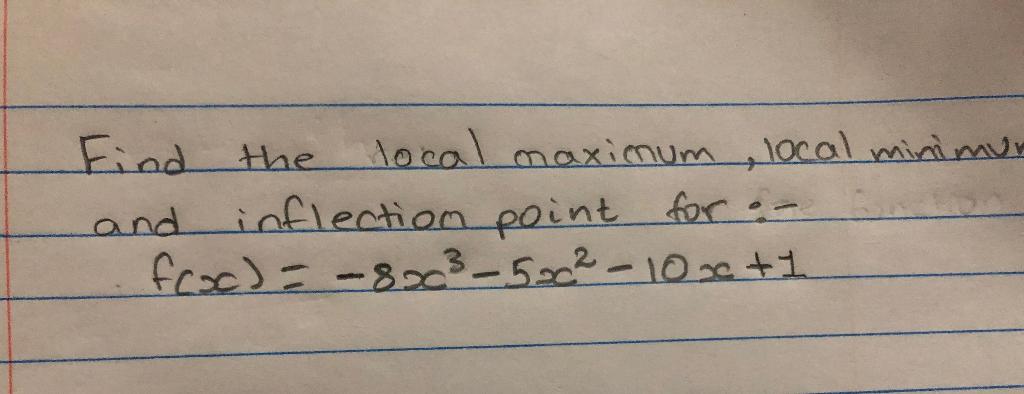 Find the local maximum, local minimum
and inflection point for :-
f(x) = -8x³-5x²-10x+1